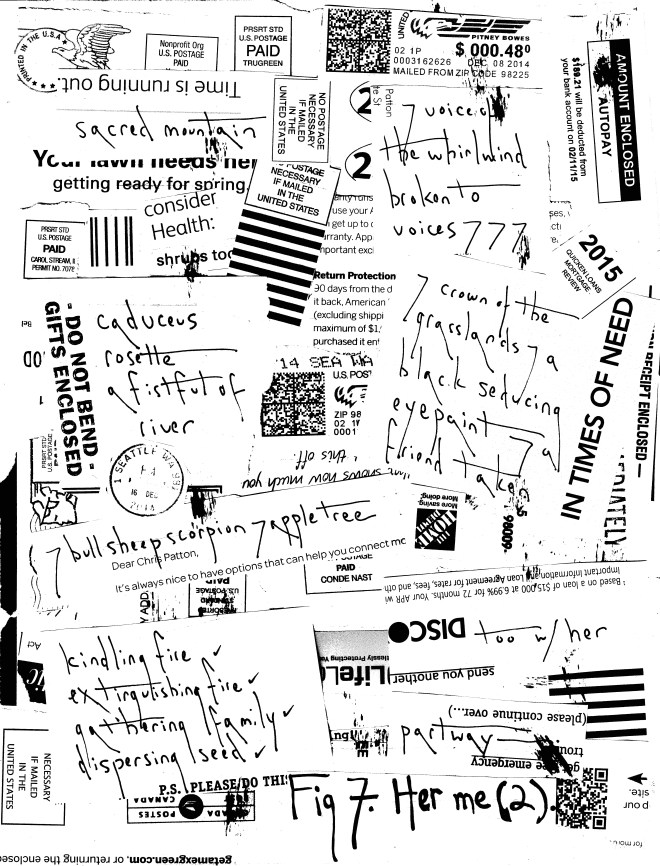 PRINTED IN THE U.S.A.
Nonprofit Org
U.S. POSTAGE
PAID
PRSRT STD
U.S. POSTAGE
PAID
TRUGREEN
UNITED
PITNEY BOWES
02 1P
$ 000.48⁰
0003162626
DEC 08 2014
MAILED FROM ZIP CODE 98225
AMOUNT ENCLOSED
AUTOPAY
$189.21 will be deducted from
your bank account on 02/11/15
Time is running out.
NO POSTAGE
NECESSARY
IF MAILED
IN THE
UNITED STATES
2
Patton
7 voice of
the whirlwind
broken to
voices 777
sacred mountain
Your lawn needs
getting ready for spring.
consider
Health:
shrubs too
POSTAGE
NECESSARY
IF MAILED
IN THE
UNITED STATES
2
PRSRT STD
U.S. POSTAGE
PAID
CAROL STREAM, IL
PERMIT NO. 7072
use your A
get up to
rranty. App
portant exc
2015
QUICKEN LOANS
MORTGAGE
REVIEW
Return Protection
90 days from the d
it back, American
(excluding shippi
maximum of $1,
purchased it ent
7 crown of the
grasslands 7 a
black seducing
eyepaint 7 a
friend takes
- DO NOT BEND -
GIFTS ENCLOSED
caduceus
rosette
a fistful of
river
14 SEA WA
U.S. POST
ZIP 98
02 1P
0001
IN TIMES OF NEED
RECEIPT ENCLOSED
SEATTLE WA 981
16 DEC
this off.
shows how much you
7 bull sheep scorpion 7 apple tree
Dear Chris Patton,
It's always nice to have options that can help you connect
More saving.
More doing.
98009
PAID
CONDE NAST
U.S. POSTAGE
PAID
Important Information: Loan Agreement for rates, fees, and oth
¹ Based on a loan of $15,000 at 6.99% for 72 months. Your APR wi
kindling fire ✓
extinguishing fire ✓
gathering family ✓
dispersing seed ✓
LifeL
DISCO
too w/her
send you another
(please continue over...)
partway
emergency
NECESSARY
IF MAILED
IN THE
UNITED STATES
P.S. PLEASE/DO THIS
CANADA
POSTES
CANADA
Fig 7. Her me (2).
getamexgreen.com, or returning the enclosed